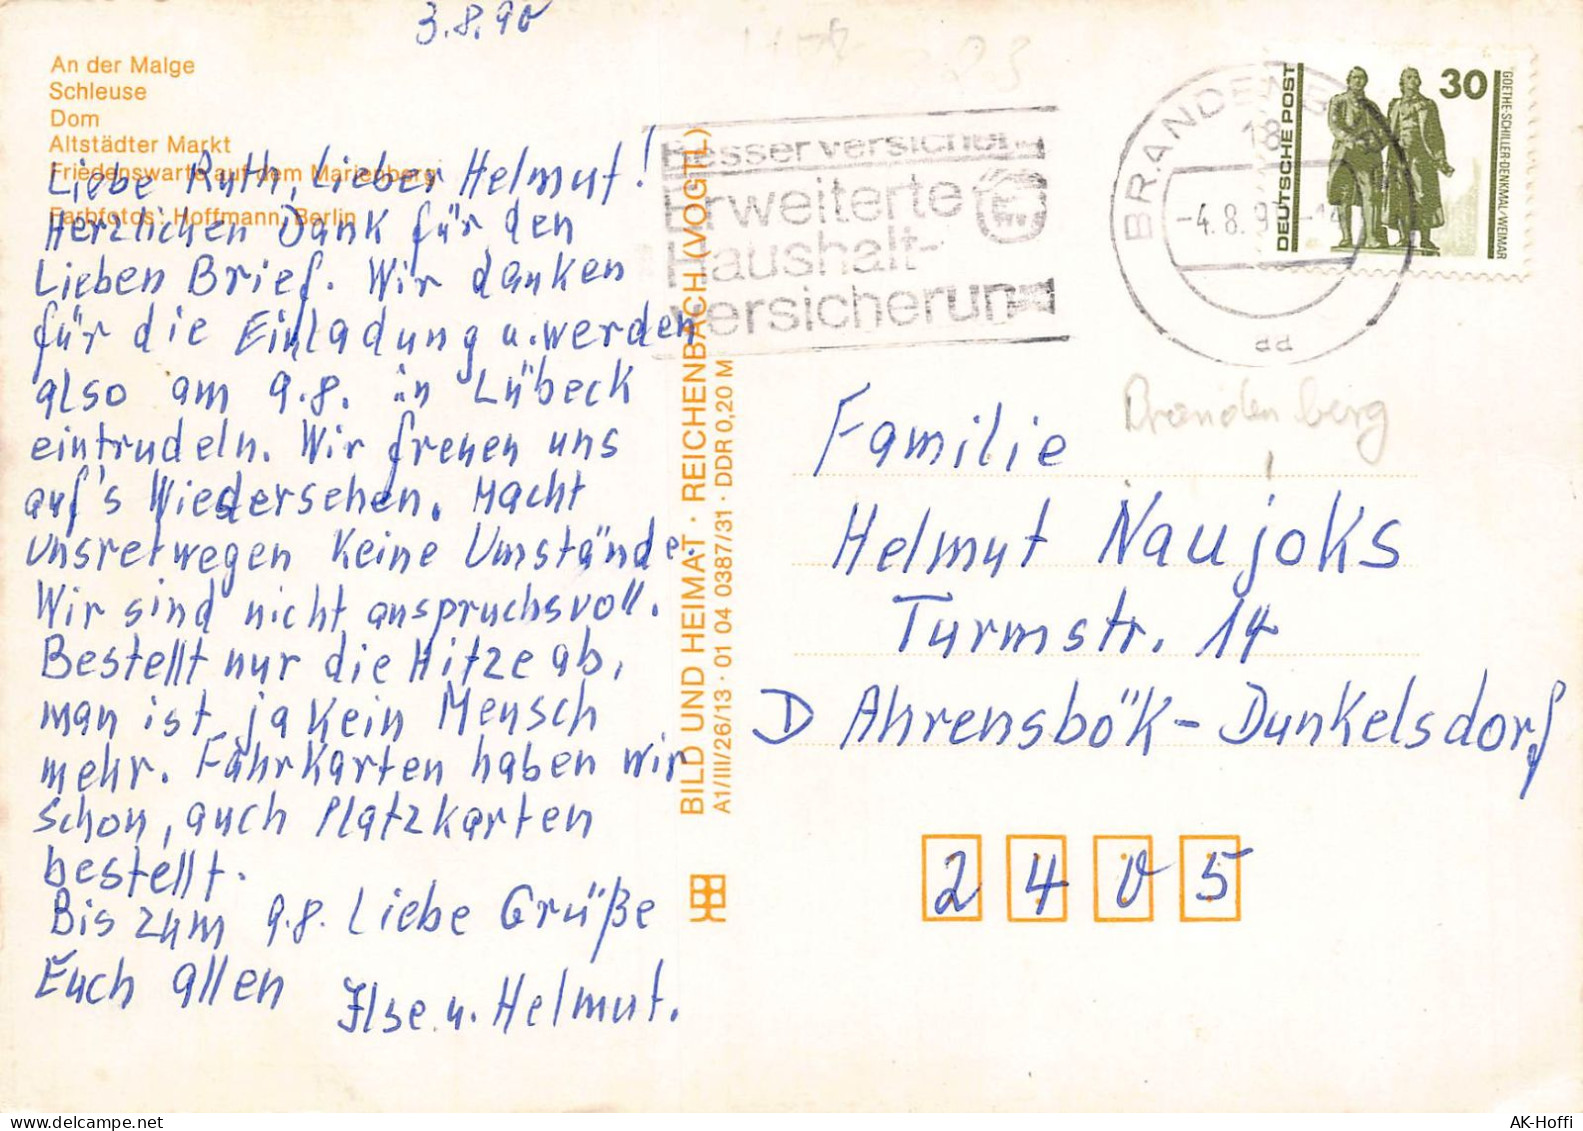 3.8.90
An der Malge
Schleuse
Dom
Altstädter Markt
Friedenswarte auf dem Marienberg
Farbfotos: Hoffmann, Berlin
Liebe Ruth, Lieber Helmut!
Herzlichen Dank für den
Lieben Brief. Wir danken
für die Einladung u. werden
also am 9.8. in Lübeck
eintrudeln. Wir freuen uns
auf's Wiedersehen. Macht
Unsretwegen Keine Umstände.
Wir sind nicht anspruchsvoll.
Bestellt nur die Hitze ab,
man ist ja Kein Mensch
mehr. Fahrkarten haben wir
schon, auch Platzkarten
bestellt.
Bis zum 9.8. Liebe Grüße
Euch allen
Ilse u. Helmut.
BILD UND HEIMAT · REICHENBACH (VOGTL)
A1/III/26/13 · 01 04 0387/31 · DDR 0,20 M
Besser versichert
Erweiterte
Haushalt-
versicherung
BRANDENBURG
18
-4.8.9
aa
DEUTSCHE POST
30
GOETHE-SCHILLER-DENKMAL/WEIMAR
Brandenberg
Familie
Helmut Naujoks
Turmstr. 14
D Ahrensbök-Dunkelsdorf
2405
AK-Hoffi